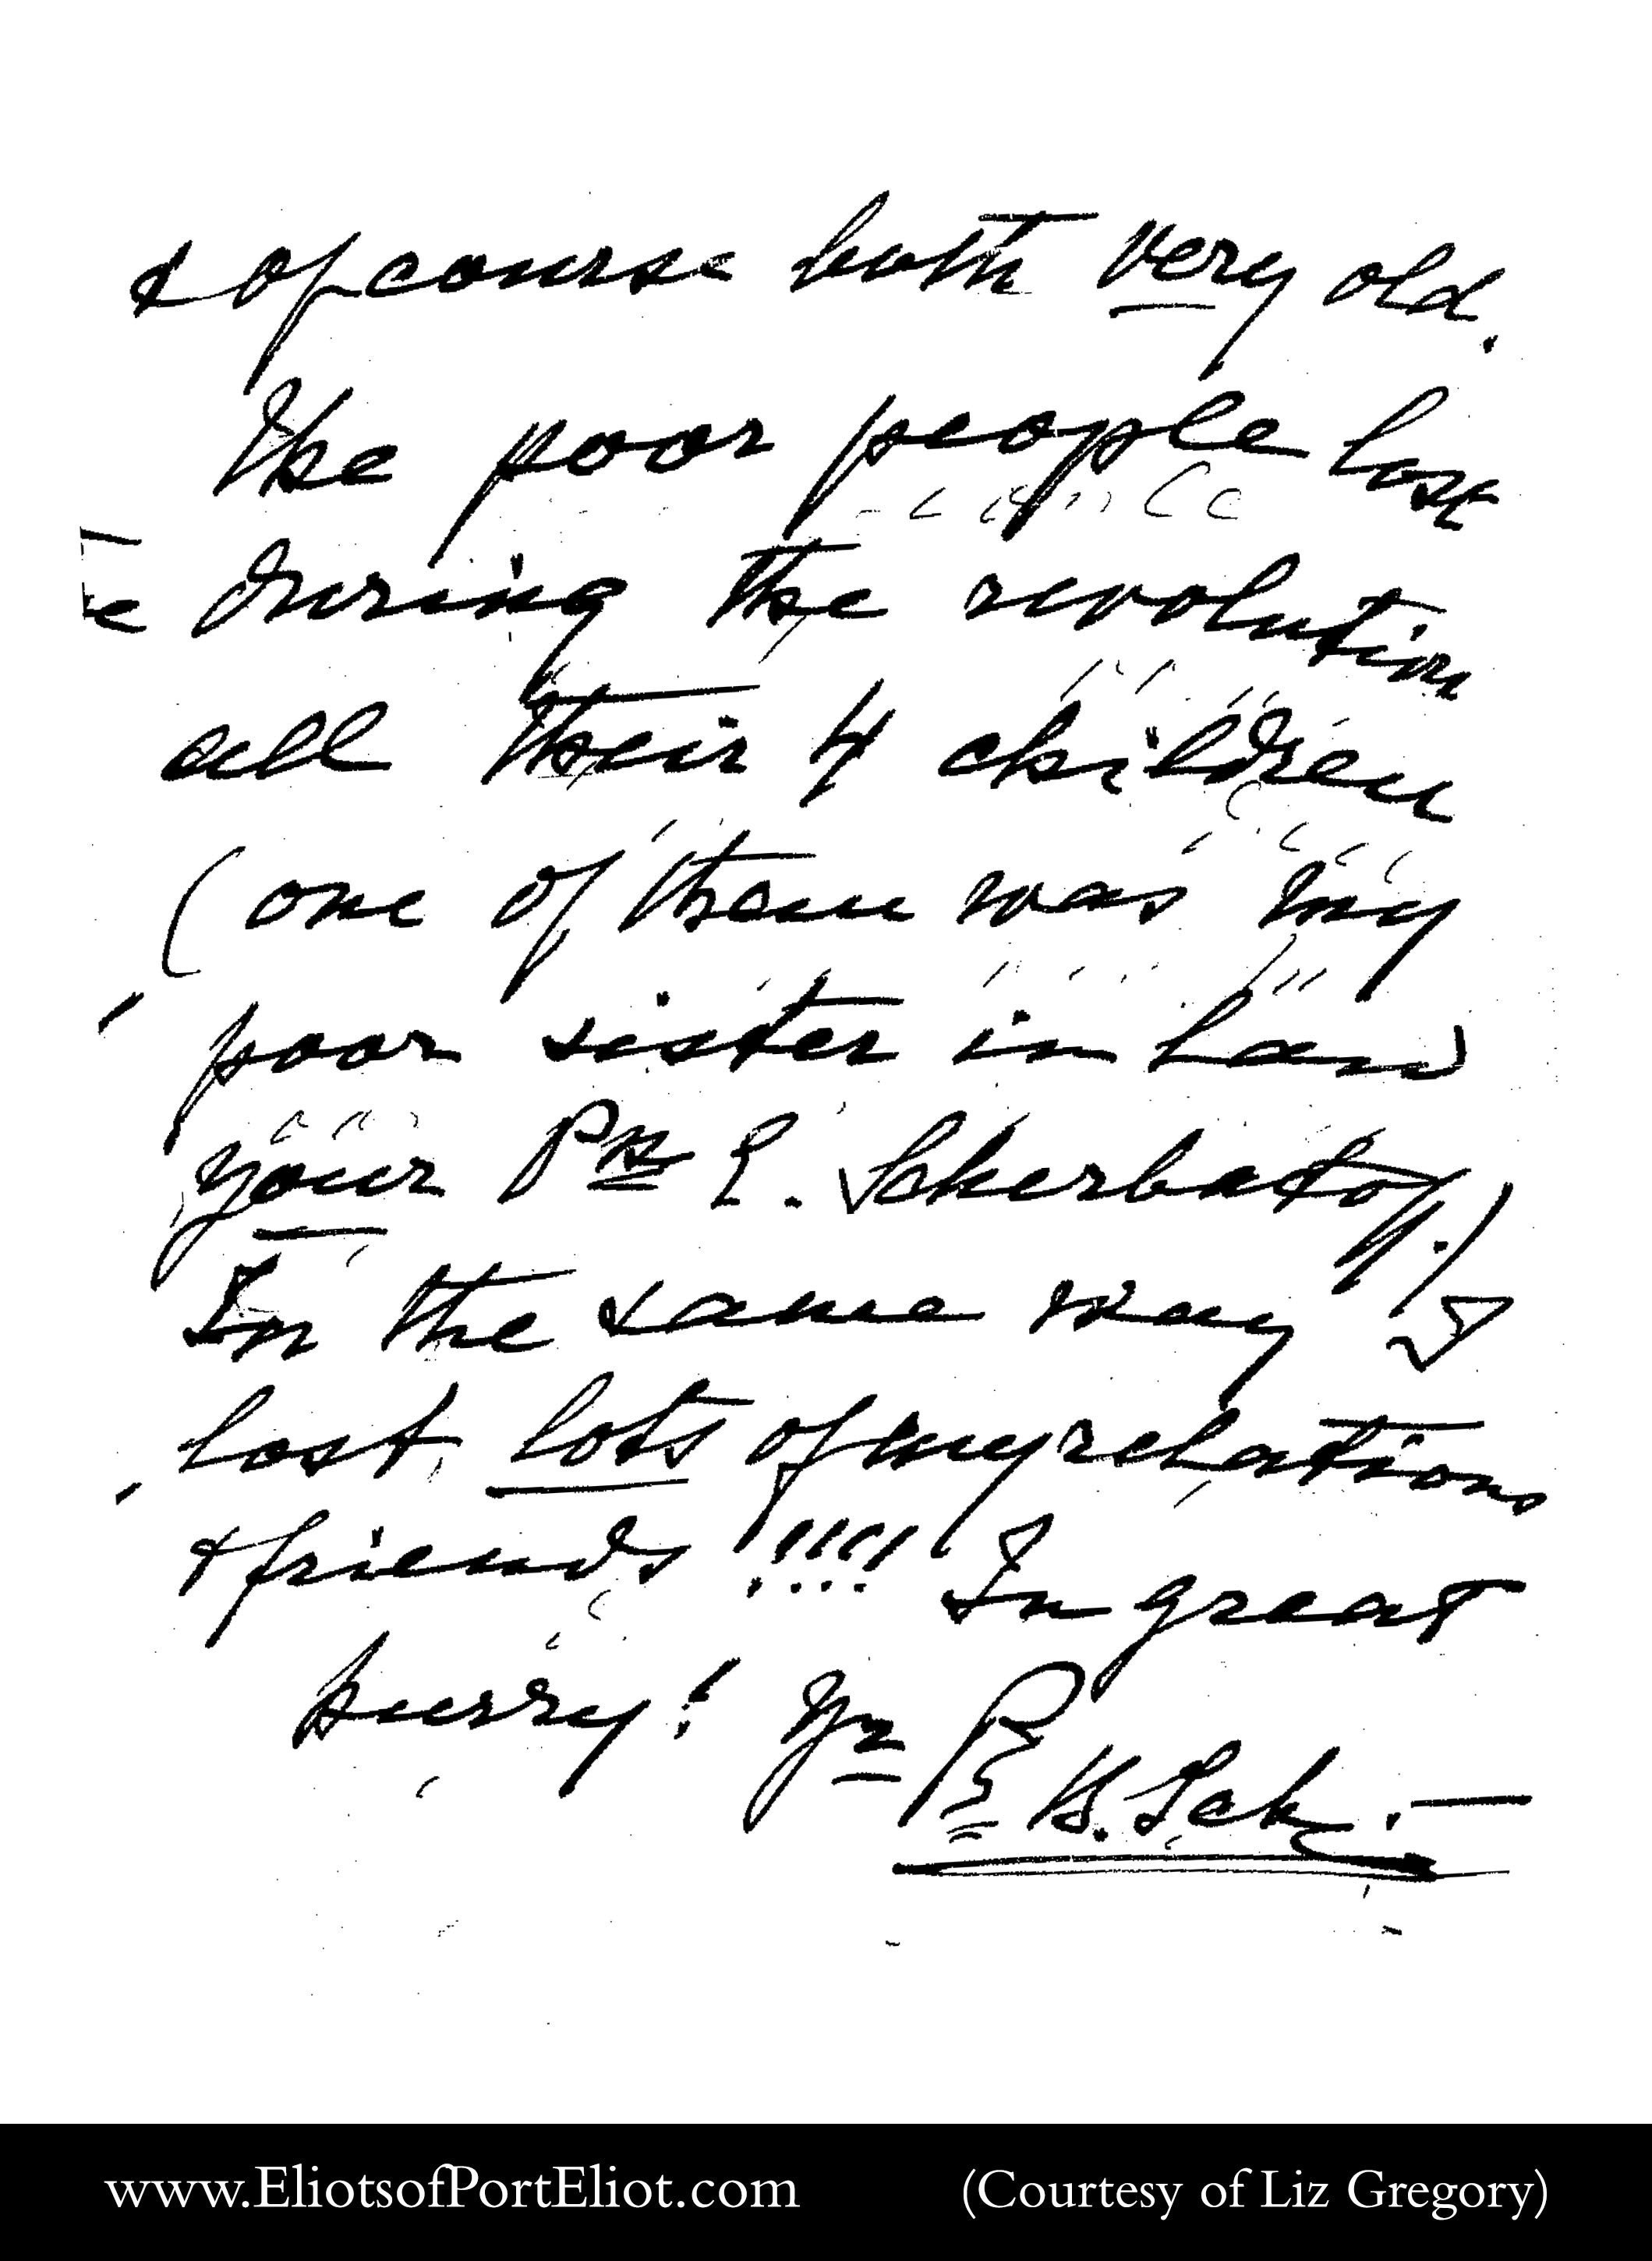 & of course both very old.
The poor people lost
during the revolution
all their 4 children
(one of them was my
poor sister in law
your Pss E. Scherbatoff.)
In the same way I
lost lots of my relations
& friends !!!! In great
hurry! Yr Pss Sch.—
www.EliotsofPortEliot.com (Courtesy of Liz Gregory)